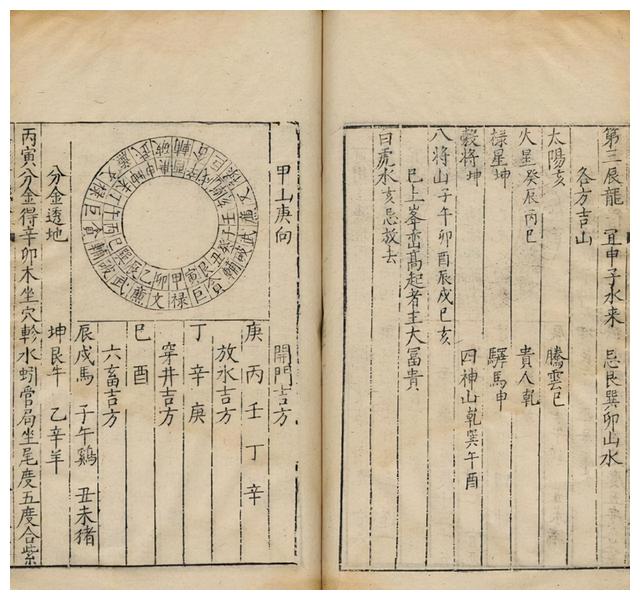 第三辰龍 宜申子水来 忌艮巽卯山水
各方吉山
太陽亥 騰雲巳
火星癸辰丙巳 貴人乾
禄星坤 驛馬申
穀将坤 四神山乾巽午酉
八將山子午卯酉辰戌巳亥
已上峯巒髙起者主大冨貴
白虎水亥忌放去
甲山庚向
開門吉方
庚丙壬丁辛
放水吉方
丁辛庚
穿井吉方
巳酉
六畜吉方
辰戌馬 子午鷄 丑未猪
坤艮牛 乙辛羊
分金透地
丙寅分金得辛卯木坐穴軫水蚓當局坐尾度五度合紫